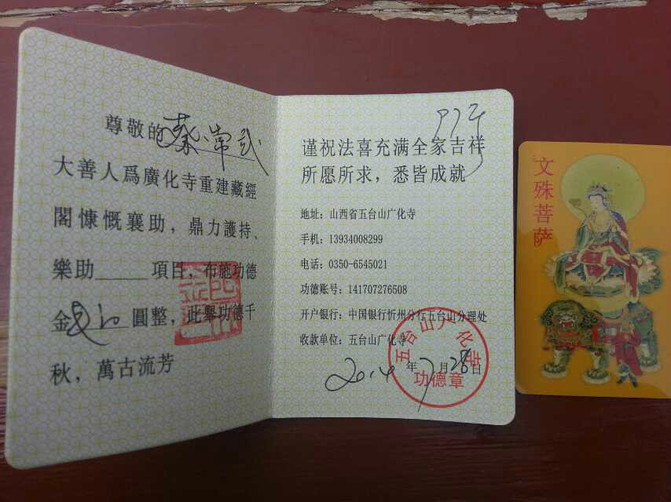 尊敬的蔡常武
大善人爲廣化寺重建藏經
閣慷慨襄助，鼎力護持、
樂助____項目，布施功德
金 圓整，此舉功德千
秋，萬古流芳
谨祝法喜充满全家吉祥
所愿所求，悉皆成就
地址：山西省五台山广化寺
手机：13934008299
电话：0350-6545021
功德账号：141707276508
开户银行：中国银行忻州分行五台山分理处
收款单位：五台山广化寺
2014年7月28日
五台山广化寺
功德章
文殊菩萨